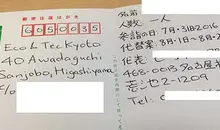 郵便往復はがき
6050035
Eco & Tec Kyoto
40 Awadaguchi
Sanjobo, Higashiyama
c/o
名前
人数: 一人
参詣の日: 7月31日
代替案: 8月1日~8月
代表:
468-0013 名古屋
荒池2-1209
Tel: